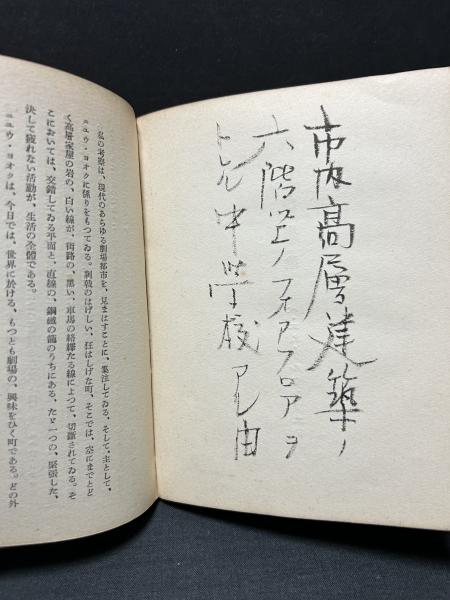 市内高層建築ノ
六階ノフオアフロアヲ
トル中学校アル由
私の考察は、現代のあらゆる劇場都市を、見まはすことに、集注してゐる。そして、主として、
ニユウ・ヨオクに係りをもつてゐる。刺戟のはげしい、狂はしげな町、そこでは、空にまでとど
く高層家屋の岩の、白い線が、街路の、黒い、車馬の絡繹たる線によつて、切斷されてゐる。そ
こにおいては、交錯してゐる平面と、直線の、鋼鐵の籠のうちにある、たゞ一つの、緊張した、
決して疲れない活動が、生活の全體である。
ニユウ・ヨオクは、今日では、世界に於ける、もつとも劇場の、興味をひく町である。どの外